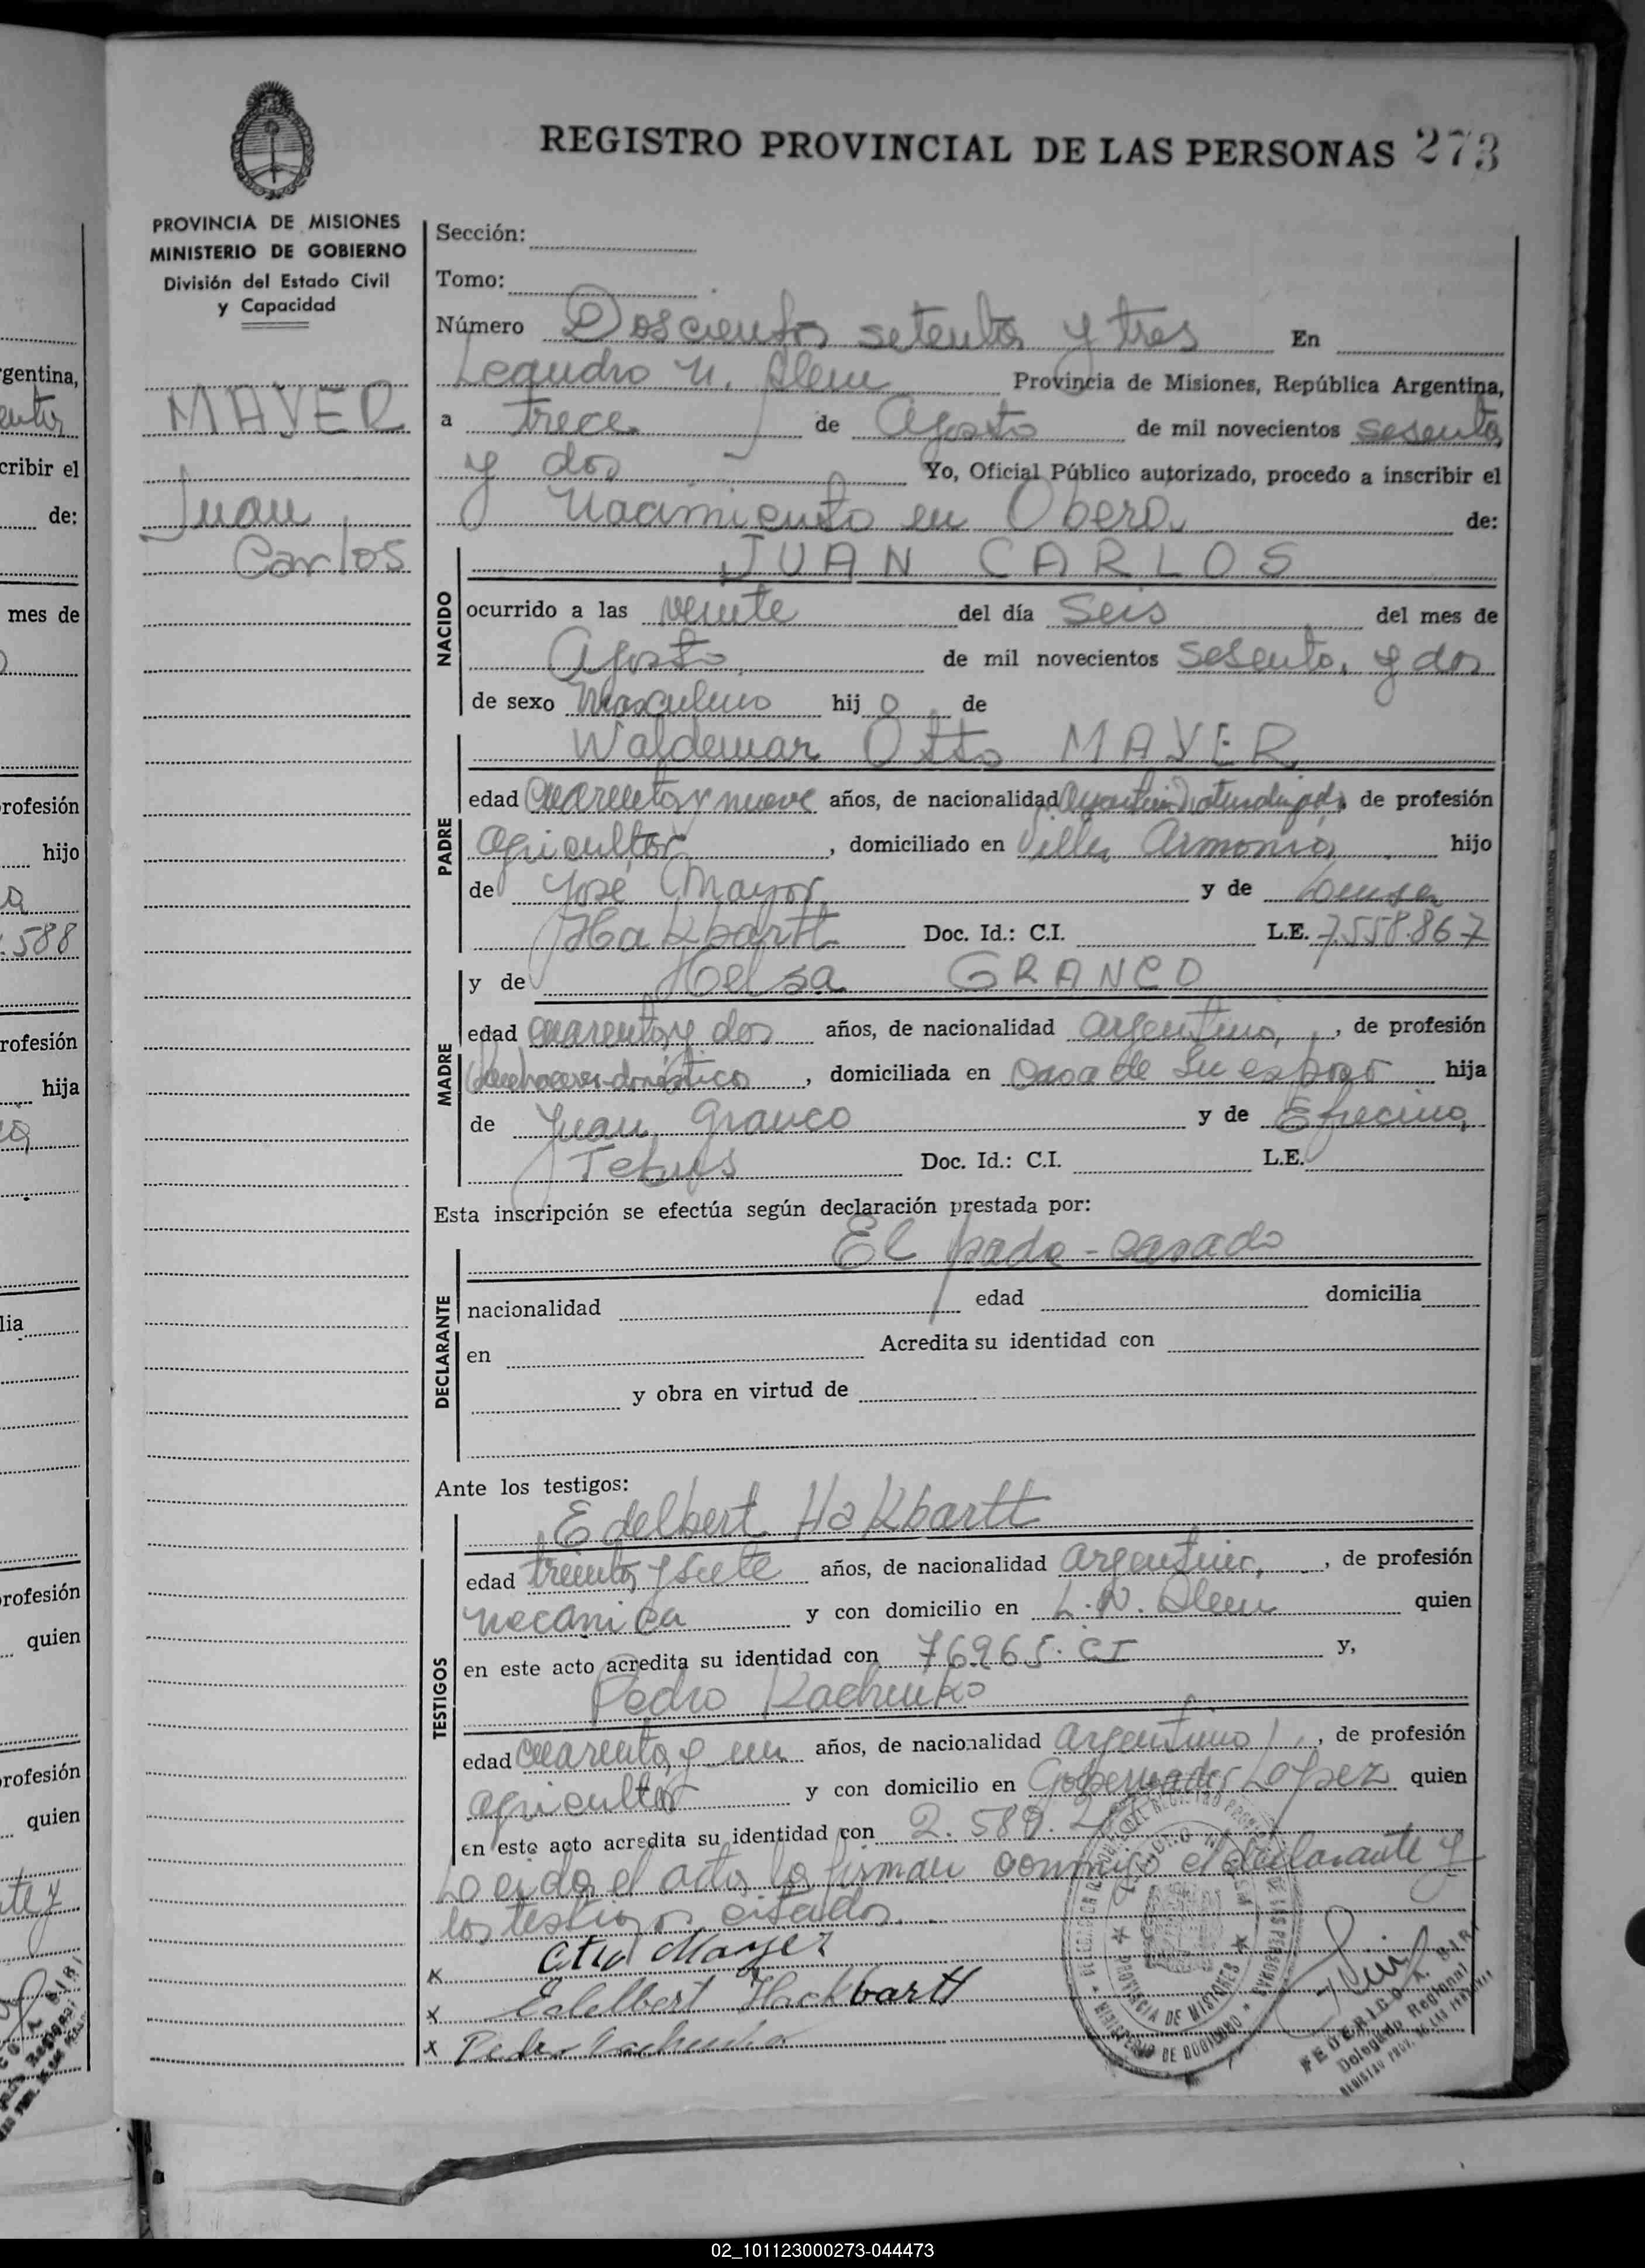 REGISTRO PROVINCIAL DE LAS PERSONAS 273
PROVINCIA DE MISIONES
MINISTERIO DE GOBIERNO
División del Estado Civil
y Capacidad
MAYER
Juan
Carlos
Sección:
Tomo:
Número Doscientos setenta y tres En
Leandro N. Alem Provincia de Misiones, República Argentina,
a trece de Agosto de mil novecientos sesenta
y dos Yo, Oficial Público autorizado, procedo a inscribir el
Nacimiento en Oberá de:
NACIDO
JUAN CARLOS
ocurrido a las veinte del día Seis del mes de
Agosto de mil novecientos sesenta y dos
de sexo Masculino hijo de
PADRE
Waldemar Otto MAYER
edad cuarenta y nueve años, de nacionalidad Argentino Naturalizado, de profesión
agricultor, domiciliado en Villa Armonia hijo
de José Mayor y de Luisa
Hakbartt Doc. Id.: C.I. L.E. 7.558.867
MADRE
y de Helsa GRANCO
edad cuarenta y dos años, de nacionalidad argentina, de profesión
quehaceres domésticos, domiciliada en casa de su esposo hija
de Juan Granco y de
Doc. Id.: C.I. L.E.
Esta inscripción se efectúa según declaración prestada por:
DECLARANTE
El padre - casado
nacionalidad edad domicilia
en Acredita su identidad con
y obra en virtud de
Ante los testigos:
TESTIGOS
Edelbert Hakbartt
edad treinta y siete años, de nacionalidad argentino, de profesión
mecanica y con domicilio en L. N. Alem quien
en este acto acredita su identidad con 76965. CI y,
Pedro Kachuko
edad cuarenta y un años, de nacionalidad argentino, de profesión
agricultor y con domicilio en Gobernador Lopez quien
en este acto acredita su identidad con 2.589.
Leida el acta la firman conmigo el declarante y
los testigos citados.
x Otto Mayer
x Edelbert Hackbartt
x Pedro Kachuko
PROVINCIA DE MISIONES
MINISTERIO DE GOBIERNO
FEDERICO A.
Delegado Regional
gentina,
cribir el
de:
mes de
rofesión
hijo
.588
rofesión
hija
lia
rofesión
quien
rofesión
quien
te y
02_101123000273-044473